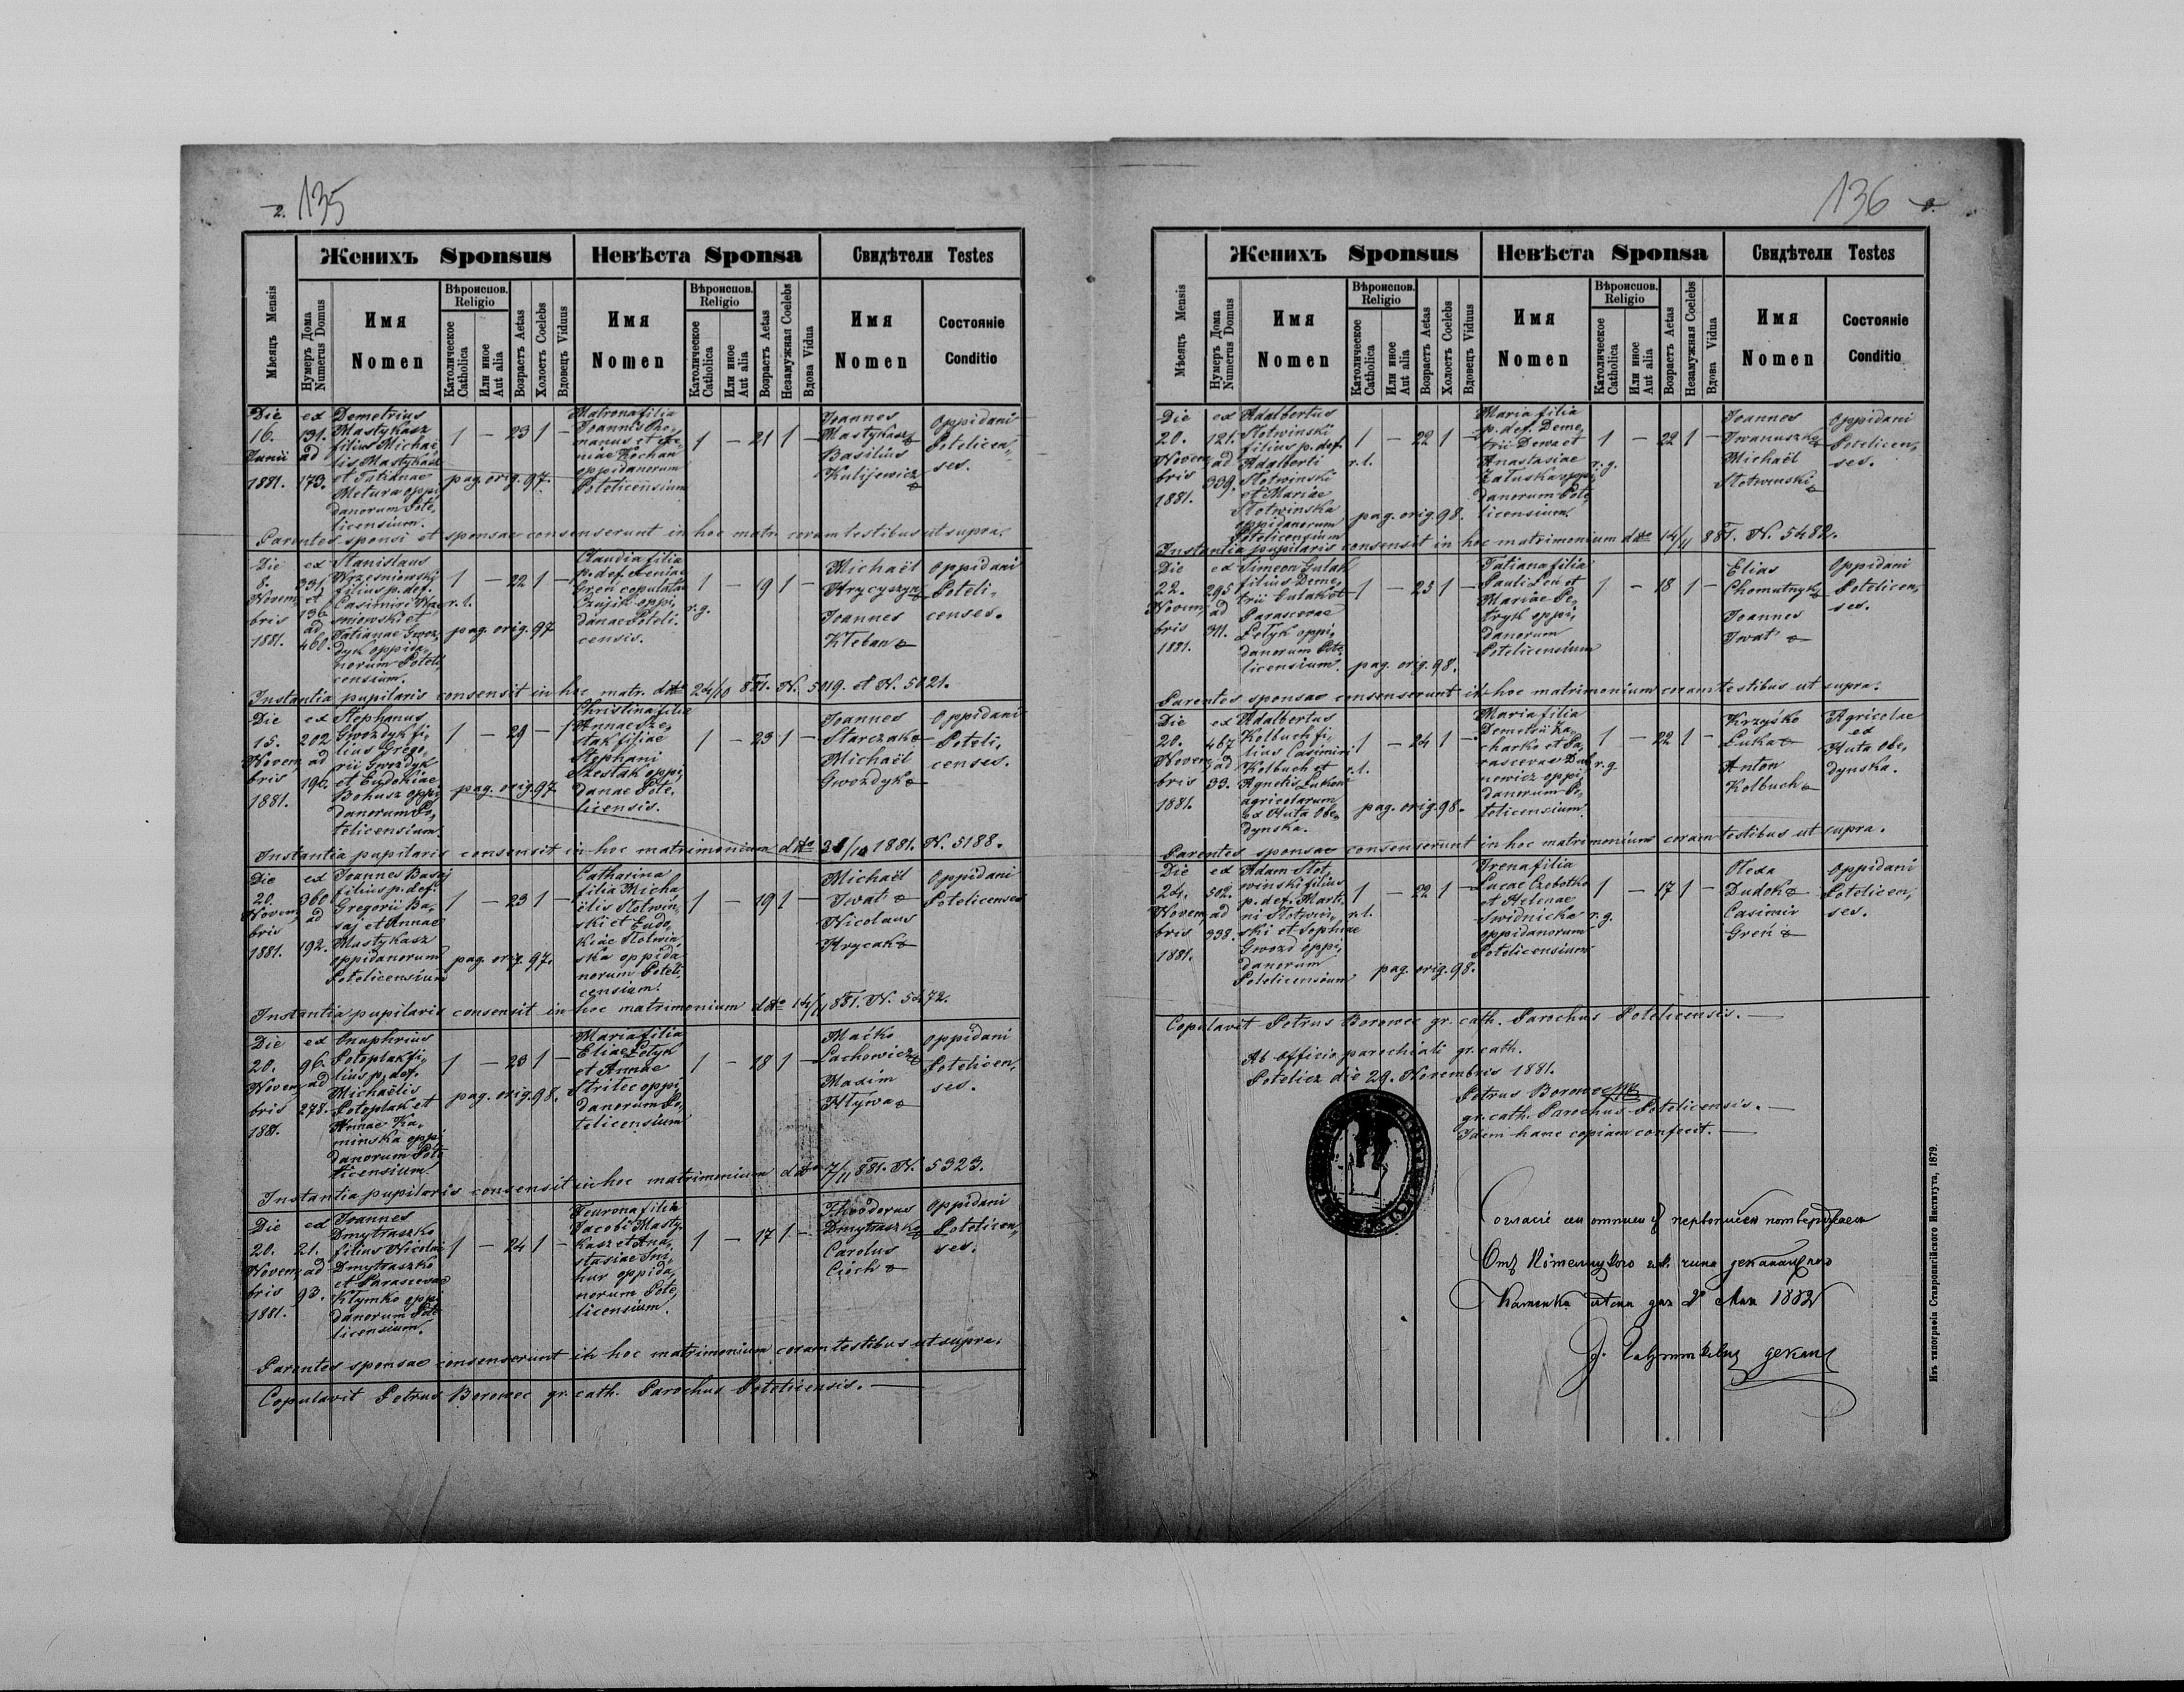 2. 135
Женихъ Sponsus
Невѣста Sponsa
Свидѣтели Testes
Мѣсяцъ Mensis
Нумеръ Дома
Numerus Domus
Имя
Nomen
Вѣроиспов.
Religio
Католическое
Catholica
Или иное
Aut alia
Возрастъ Aetas
Холостъ Coelebs
Вдовецъ Viduus
Имя
Nomen
Вѣроиспов.
Religio
Католическое
Catholica
Или иное
Aut alia
Возрастъ Aetas
Незамужная Coelebs
Вдова Vidua
Имя
Nomen
Состояніе
Conditio
Die
16.
Junii
1881.
ex
131.
ad
173.
Demetrius
Mastykasz
filius Michae
lis Mastykasz
et Tatianae
Metura oppi,
danorum Pote,
licensium.
1 — 23 1 —
pag. orig. 97.
Matrona filia
Joannis
manus et
niae Kochan
oppidanorum
Potelicensium
1 — 21 1 —
Joannes
Mastykasz
Basilius
Kulijewicz
Oppidani
Potelicen,
ses.
Parentes sponsi et sponsae consenserunt in hoc matr. coram testibus ut supra.
Die
8.
Novem,
bris
1881.
ex
331
et
136
ad
460.
Stanislaus
Wrzesniowski
filius p. def.
Casimiri Wrze
sniowski et
Tatianae Gwoz,
dyk oppida,
norum Poteli,
censium.
1 — 22 1 —
r. l.
pag. orig. 97
Claudia filia
p. def. Xeniae
Gren copulatae
Czujik oppi,
danae Poteli,
censis.
1 — 19 1 —
r. g.
Michaël
Hrycyszyn
Joannes
Kteban
Oppidani
Poteli,
censes.
Instantia pupilaris consensit in hoc matr. ddto 24/10 881. N. 5019. et N. 5021.
Die
15.
Novem
bris
1881.
ex
202
ad
192.
Stephanus
Gwozdyk fi,
lius Grego,
rii Gwozdyk
et Eudokiae
Bohusz oppi,
danorum Po,
telicensium.
1 — 29 — 1
pag. orig. 97.
Christina filia
Annae Sze,
stak filiae
Stephani
Szestak oppi,
danae Pote,
licensis.
1 — 23 1 —
Joannes
Starczak
Michaël
Gwozdyk
Oppidani
Poteli,
censes.
Instantia pupilaris consensit in hoc matrimonium ddto /10 1881. N. 5188.
Die
20.
Novem,
bris
1881.
ex
360
ad
192.
Joannes Basaj
filius p. def.
Gregorii Ba,
saj et Annae
Mastykasz
oppidanorum
Potelicensium
1 — 23 1 —
pag. orig. 97.
Catharina
filia Micha
ëlis Slotwin,
ski et Eudo,
kiae Slotwin,
ska oppida
norum Poteli,
censium.
1 — 19 1 —
Michaël
Iwat
Nicolaus
Hrycak
Oppidani
Potelicenses
Instantia pupilaris consensit in hoc matrimonium ddto 14/11 881. N. 5472.
Die
20.
Novem,
bris
1881.
ex
96.
ad
278.
Onuphrius
Potoplak fi,
lius p. def.
Michaëlis
Potoplak et
Annae Ka,
minska oppi
danorum Pote
licensium.
1 — 23 1 —
pag. orig. 98.
Maria filia
Eliae Petyk
et Annae
Strilec oppi,
danorum Po,
telicensium
1 — 18 1 —
Maćko
Lachowicz
Maxim
Hlywa
Oppidani
Potelicen,
ses.
Instantia pupilaris consensit in hoc matrimonium ddto 7/11 881. N. 5323.
Die
20.
Novem,
bris
1881.
ex
21.
ad
93.
Joannes
Dmytraszko
filius Nicolai
Dmytraszko
et Parascevae
Klymko oppi
danorum Pote
licensium.
1 — 24 1 —
Feurona filia
Jacobi Masty,
kasz et Ana,
stasiae
hur oppida,
norum Pote,
licensium.
1 — 17 1 —
Theodorus
Dmytraszko
Carolus
Cioch
Oppidani
Potelicen,
ses.
Parentes sponsae consenserunt in hoc matrimonium coram testibus ut supra.
Copulavit Petrus Borowec gr. cath. Parochus Potelicensis. —
136
Женихъ Sponsus
Невѣста Sponsa
Свидѣтели Testes
Мѣсяцъ Mensis
Нумеръ Дома
Numerus Domus
Имя
Nomen
Вѣроиспов.
Religio
Католическое
Catholica
Или иное
Aut alia
Возрастъ Aetas
Холостъ Coelebs
Вдовецъ Viduus
Имя
Nomen
Вѣроиспов.
Religio
Католическое
Catholica
Или иное
Aut alia
Возрастъ Aetas
Незамужная Coelebs
Вдова Vidua
Имя
Nomen
Состояніе
Conditio
Die
20.
Novem
bris
1881.
ex
121.
ad
339.
Adalbertus
Slotwinski
filius p. def.
Adalberti
Slotwinski
et Mariae
Slotwinska
oppidanorum
Potelicensium
1 — 22 1 —
r. l.
pag. orig. 98.
Maria filia
p. def. Deme,
trii Dewa et
Anastasiae
Zaluska oppi,
danorum Pote,
licensium.
1 — 22 1 —
r. g.
Joannes
Iwanuszko
Michaël
Slotwinski
Oppidani
Potelicen,
ses.
Instantia pupilaris consensit in hoc matrimonium ddto 14/11 881. N. 5482.
Die
22.
Novem,
bris
1881.
ex
295
ad
311.
Simeon Gulak
filius Deme,
trii Gulak et
Parascevae
Petyk oppi,
danorum Pote,
licensium.
1 — 23 1 —
pag. orig. 98.
Tatiana filia
Pauli Len et
Mariae Pe,
tryk oppi,
danorum
Potelicensium
1 — 18 1 —
Elias
Chomutnyk
Joannes
Iwat
Oppidani
Potelicen,
ses.
Parentes sponsae consenserunt in hoc matrimonium coram testibus ut supra.
Die
20.
Novem,
bris
1881.
ex
467
ad
33.
Adalbertus
Kolbuch fi,
lius Casimiri
Kolbuch et
Agnetis Lukow
agricolarum
ex Huta Obe,
dynska.
1 — 24 1 —
r. l.
pag. orig. 98.
Maria filia
Demetrii Za,
charko et Pa,
rascevae Dub
newicz oppi,
danorum Po,
telicensium.
1 — 22 1 —
r. g
Krzyśko
Luka
Anton
Kolbuch
Agricolae
ex
Huta Obe,
dynska.
Parentes sponsae consenserunt in hoc matrimonium coram testibus ut supra.
Die
24.
Novem,
bris
1881.
ex
502.
ad
338.
Adam Slot,
winski filius
p. def. Marti
ni Slotwin,
ski et Sophiae
Gwozd oppi,
danorum
Potelicensium
1 — 22 1 —
r. l.
pag. orig. 98.
Irena filia
Lucae Czebotko
et Helenae
Swidnicka
oppidanorum
Potelicensium
1 — 17 1 —
r. g.
Olexa
Dudok
Casimir
Greń
Oppidani
Potelicen,
ses.
Copulavit Petrus Borowec gr. cath. Parochus Potelicensis. —
Ab officio parochiali gr. cath.
Potelicz die 29. Novembris 1881.
Petrus Borowec
gr. cath. Parochus Potelicensis. —
Idem hanc copiam confecit. —
1882
декан
Изъ типографіи Ставропигійского Института, 1879.